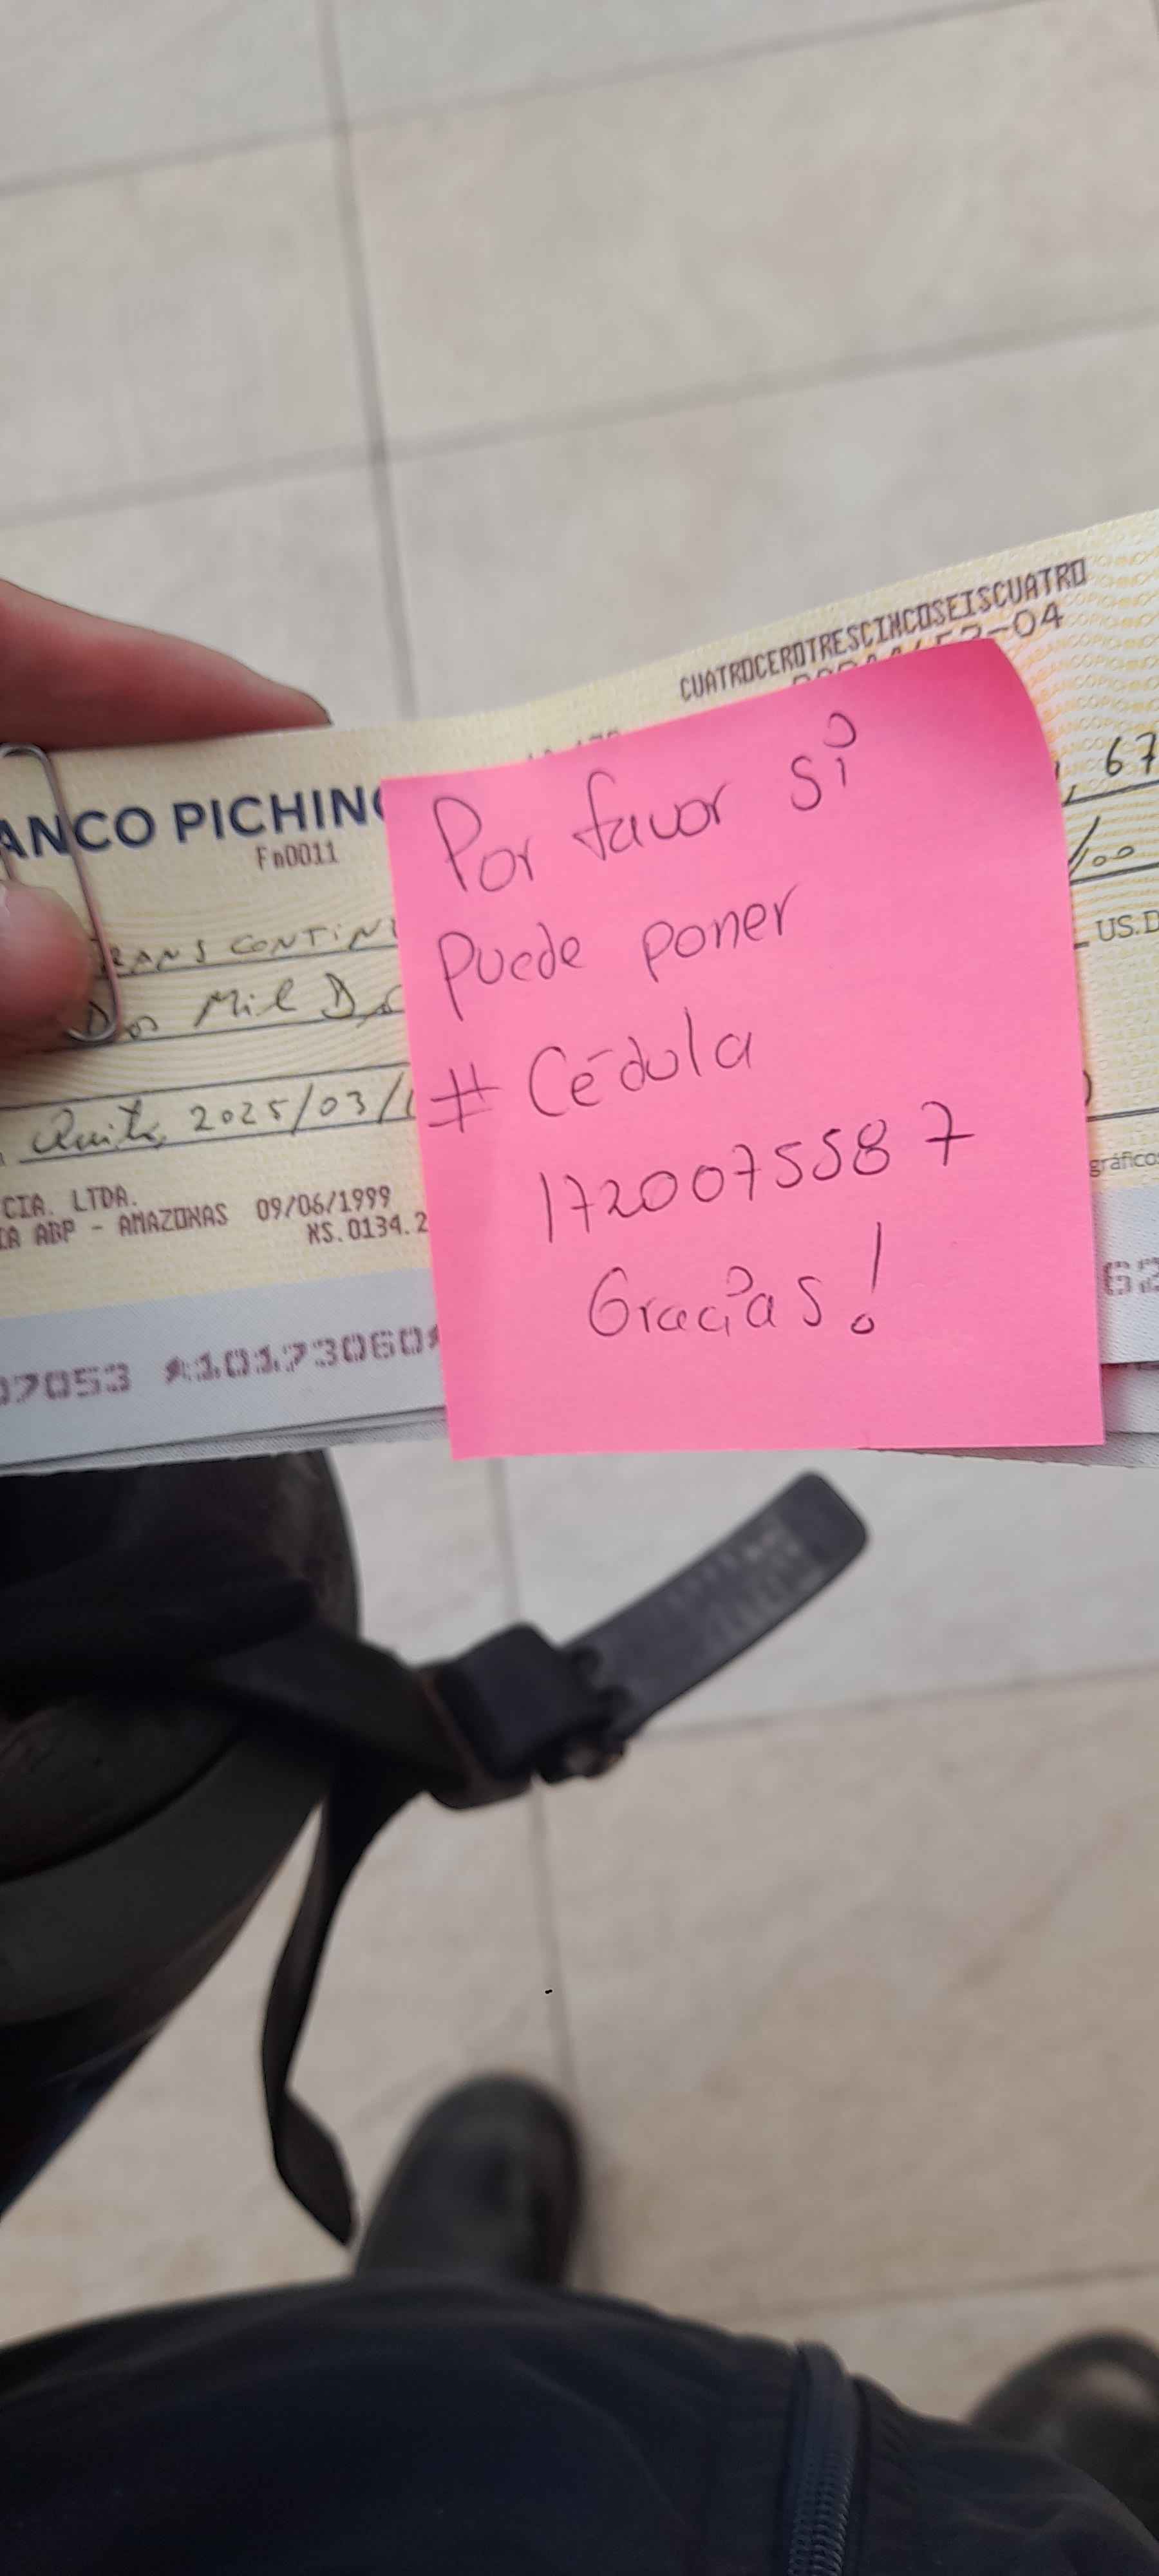 CUATROCEROTRESCINCOSEISCUATRO
-04
ANCO PICHINC
Fn0011
67
/00
RANS CONTIN
US.D
Dos Mil D
Quito, 2025/03/
CIA. LTDA.
IA ABP - AMAZONAS 09/06/1999
NS.0134.2
gráficos
07053 A10173060
62
Por favor si
Puede poner
# Cédula
1720075587
Gracias!